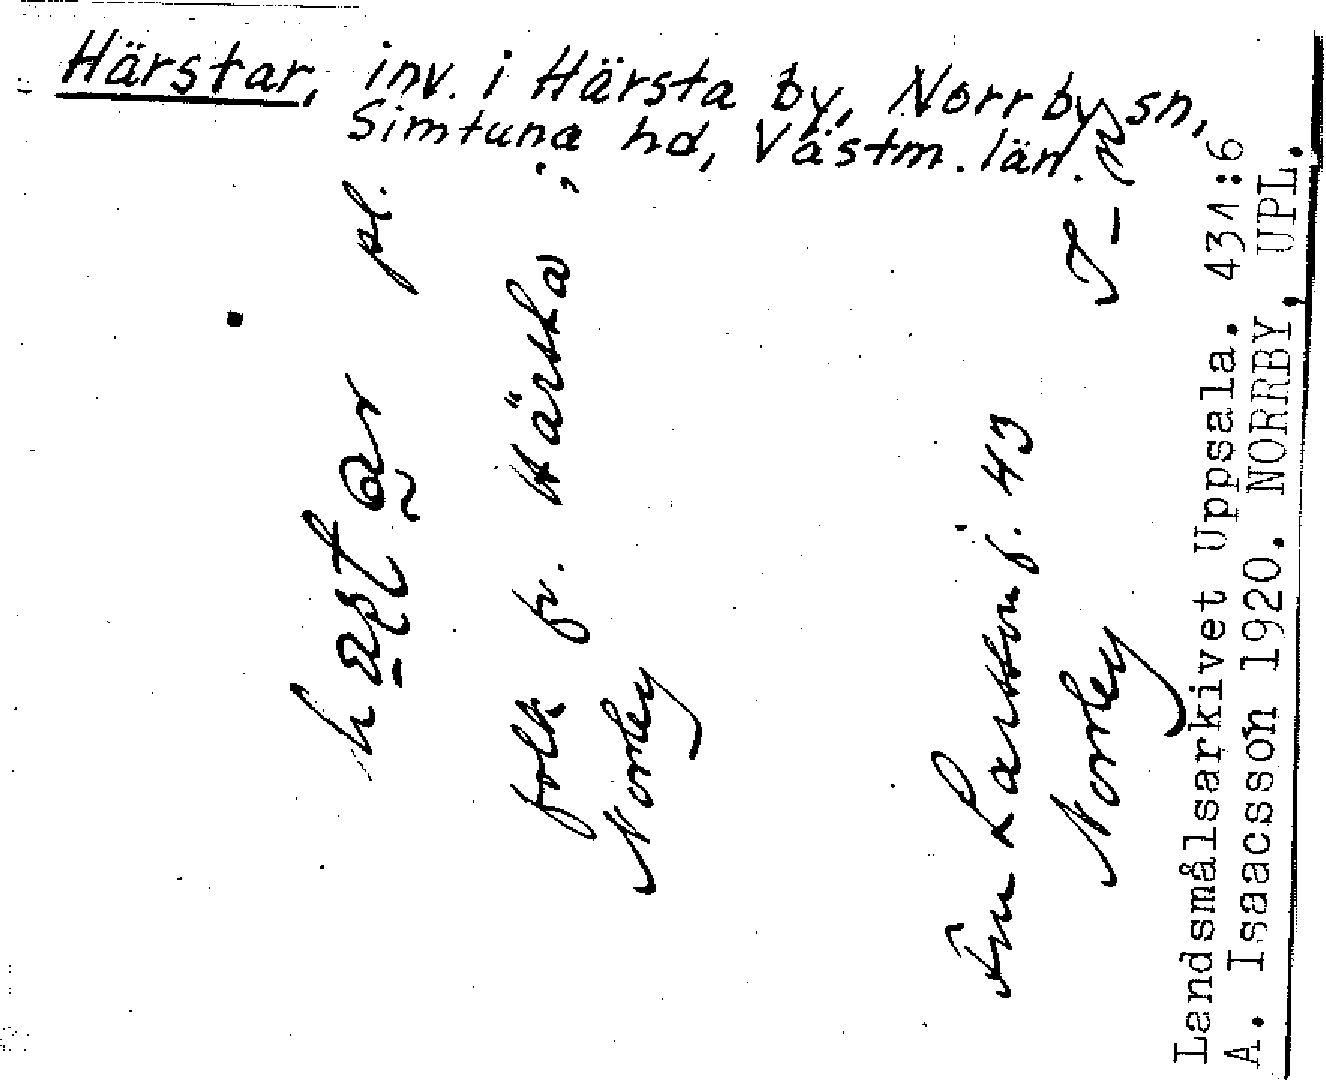 Härstar, inv. i Härsta by, Norrby sn,
Simtuna hd, Västm. län.
pl.
folk fr. Härsta i
Norrby
Fru Larsson f. 43
Norrby
I-n
Landsmålsarkivet Uppsala. 431:6
A. Isaacsson 1920. NORRBY, UPL.